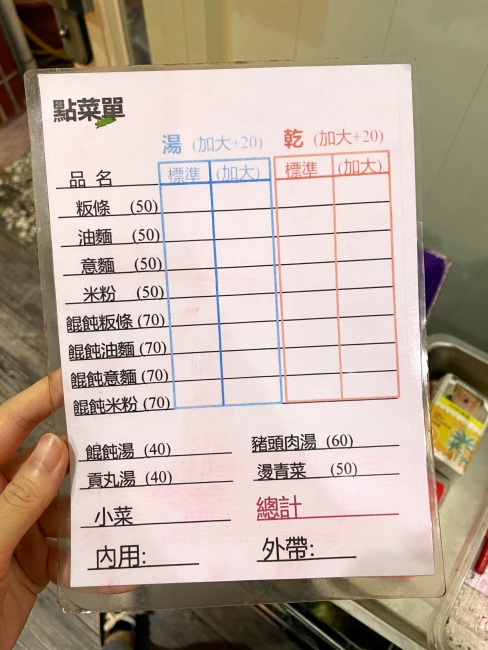 點菜單
湯 (加大+20) 乾 (加大+20)
品名 標準 (加大) 標準 (加大)
粄條 (50)
油麵 (50)
意麵 (50)
米粉 (50)
餛飩粄條 (70)
餛飩油麵 (70)
餛飩意麵 (70)
餛飩米粉 (70)
餛飩湯 (40) 豬頭肉湯 (60)
貢丸湯 (40) 燙青菜 (50)
小菜 總計
內用: 外帶: